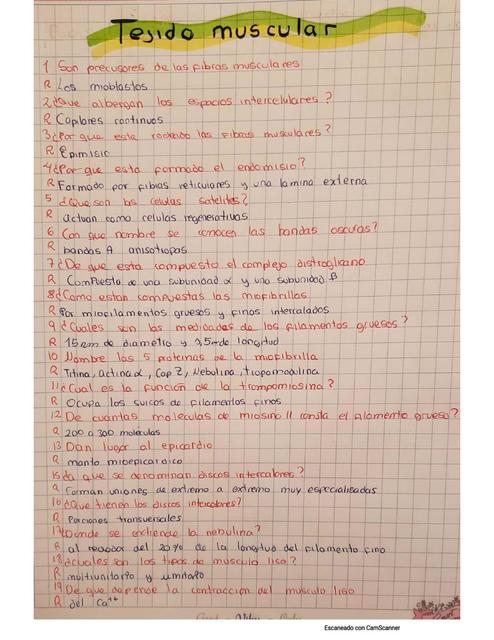 Tejido muscular
1 Son precusores de las fibras musculares
R Los mioblastos
2 ¿Que albergan los espacios intercelulares?
R Capilares continuos
3 ¿Por que esta rodeado las fibras musculares?
R Epimisio
4 ¿Por que esta formado el endomisio?
R Formado por fibras reticulares y una lamina externa
5 ¿Que son las celulas satelites?
R actuan como celulas regenerativas
6 Con que nombre se conocen las bandas oscuras?
R bandas A anisotropas
7 ¿De que esta compuesto el complejo distroglicano
R Compuesto de una subunidad α y una subunidad β
8 ¿Como estan compuestas las miofibrillas
R Por miofilamentos gruesos y finos intercalados
9 ¿Cuales son las medidades de los filamentos gruesos?
R 15 nm de diametro y 1,5 de longitud
10 Nombre las 5 proteinas de la miofibrilla
R Titina, actina α, Cap Z, Nebulina, tropomodulina
11 ¿Cual es la función de la trompomiosina?
R Ocupa los surcos de filamentos finos
12 De cuantas moleculas de miosino II consta el filamento grueso?
R 200 a 300 moleculas
13 Dan lugar al epicardio
R manto mioepicardico
15 ¿a que se denominan discos intercalores?
R Forman uniones de extremo a extremo muy especialisadas
16 ¿Que tienen los discos intercalores?
R Porciones transversales
17 ¿Donde se extiende la nebulina?
R al rededor del 20% de la longitud del filamento fino
18 ¿cuales son los tipos de musculo liso?
R multiunitario y unitario
19 De que depende la contraccion del musculo liso
R del Ca⁺⁺
Escaneado con CamScanner